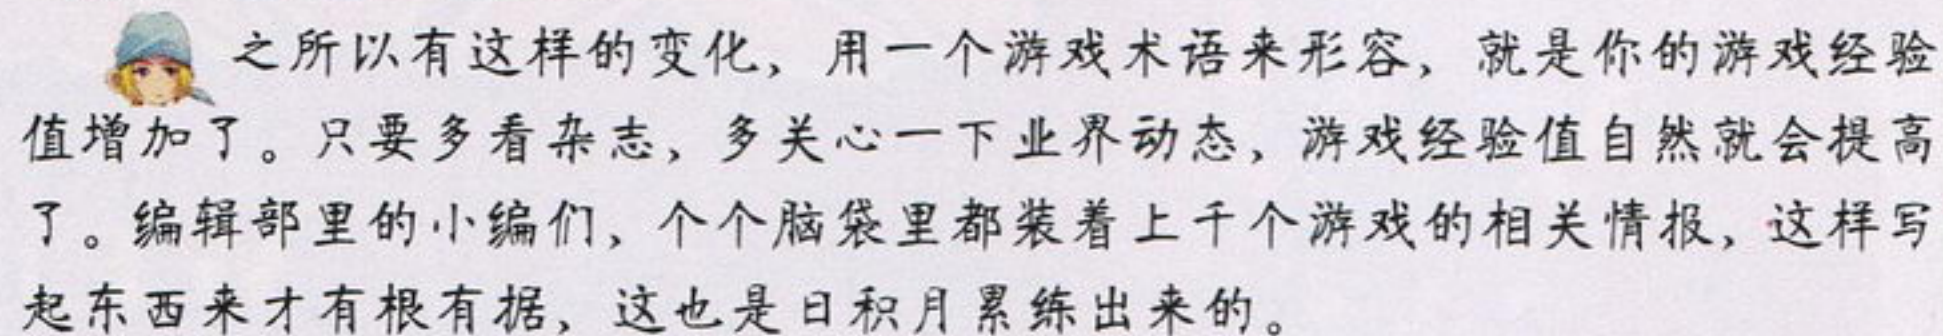 之所以有这样的变化，用一个游戏术语来形容，就是你的游戏经验
值增加了。只要多看杂志，多关心一下业界动态，游戏经验值自然就会提高
了。编辑部里的小编们，个个脑袋里都装着上千个游戏的相关情报，这样写
起东西来才有根有据，这也是日积月累练出来的。